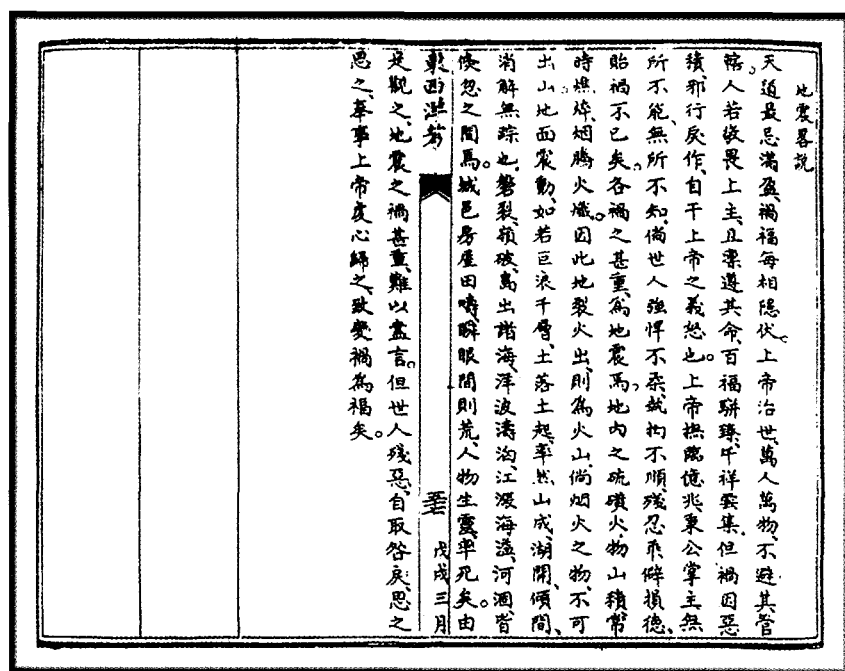 地震畧說
天道最忌滿盈、禍福每相隱伏。上帝治世、萬人萬物、不避其管
轄。人若敬畏上主、且稟遵其命、百福駢臻、千祥雲集。但禍因惡
積、邪行戾作、自干上帝之義怒也。上帝撫臨億兆、秉公掌主、無
所不能、無所不知。倘世人強悍不柔、執拘不順、殘忍乖僻損德、
貽禍不已矣。各禍之甚重、為地震焉。地內之硫磺火物、山積常
時燃焠、烟騰火熾。因此地裂火出、則為火山。倘烟火之物、不可
出山、地面震動、如若巨浪千層、土落土起、率然山成、湖開、傾間、
消解無踪也。磐裂、嶺破、島出諸海、洋波濤洶、江澱海溢、河涸、皆
倏忽之間焉。城邑房屋田疇、瞬眼間則荒、人物生靈率死矣。由
東西洋考 戊戌三月
是觀之、地震之禍甚重、難以盡言。但世人殘惡、自取咎戾、思之
思之、奉事上帝、虔心歸之、致變禍為福矣。